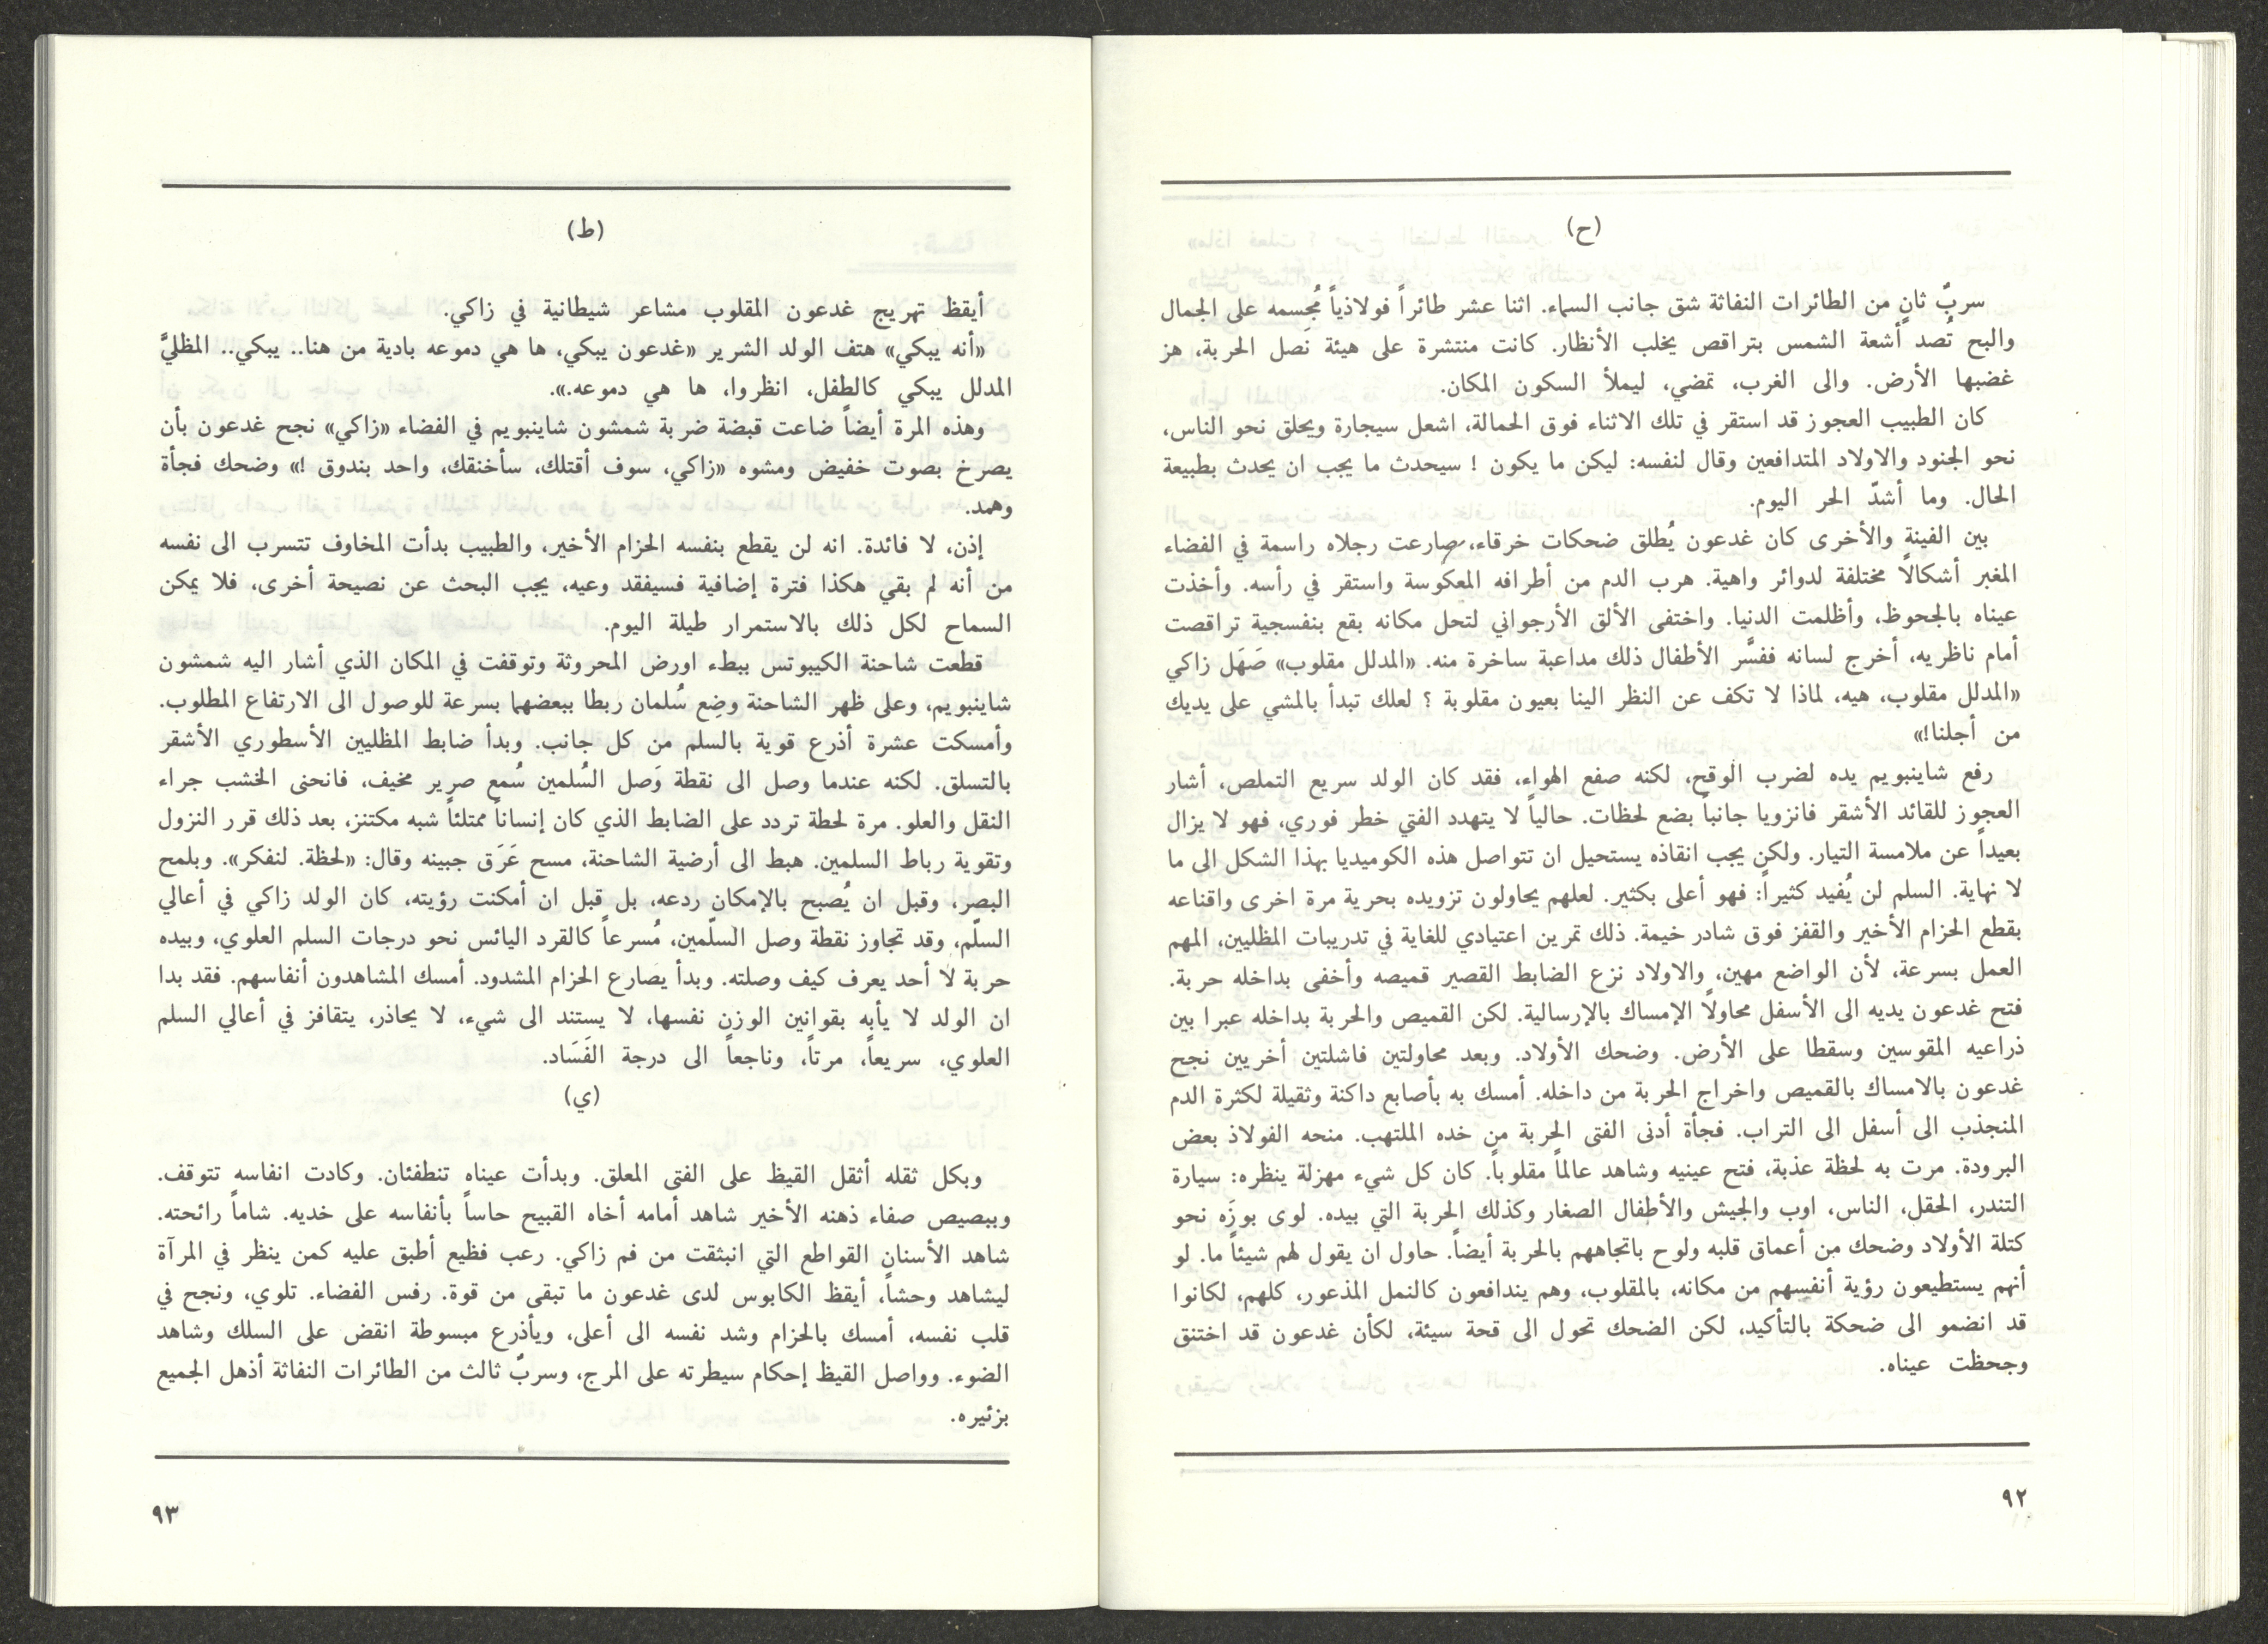 (ح)
سربٌ ثانٍ من الطائرات النفاثة شق جانب السماء. اثنا عشر طائراً فولاذياً مُجسمه على الجمال
والبح تُصد أشعة الشمس بتراقص يخلب الأنظار. كانت منتشرة على هيئة نَصل الحربة، هز
غضبها الأرض. والى الغرب، تمضي، ليملأ السكون المكان.
كان الطبيب العجوز قد استقر في تلك الاثناء فوق الحمالة، اشعل سيجارة ويحلق نحو الناس،
نحو الجنود والاولاد المتدافعين وقال لنفسه: ليكن ما يكون ! سيحدث ما يجب ان يحدث بطبيعة
الحال. وما أشدّ الحر اليوم.
بين الفينة والأخرى كان غدعون يُطلق ضحكات خرقاء، صارعت رجلاه راسمة في الفضاء
المغبر أشكالاً مختلفة لدوائر واهية. هرب الدم من أطرافه المعكوسة واستقر في رأسه. وأخذت
عيناه بالجحوظ، وأظلمت الدنيا. واختفى الألق الأرجواني لتحل مكانه بقع بنفسجية تراقصت
أمام ناظريه، أخرج لسانه ففسَّر الأطفال ذلك مداعبة ساخرة منه. «المدلل مقلوب» صَهَل زاكي
«المدلل مقلوب، هيه، لماذا لا تكف عن النظر الينا بعيون مقلوبة ؟ لعلك تبدأ بالمشي على يديك
من أجلنا!»
رفع شاينبويم يده لضرب الوقح، لكنه صفع الهواء، فقد كان الولد سريع التملص، أشار
العجوز للقائد الأشقر فانزويا جانباً بضع لحظات. حالياً لا يتهدد الفتي خطر فوري، فهو لا يزال
بعيداً عن ملامسة التيار. ولكن يجب انقاذه يستحيل ان تتواصل هذه الكوميديا بهذا الشكل الى ما
لا نهاية. السلم لن يُفيد كثيراً: فهو أعلى بكثير. لعلهم يحاولون تزويده بحرية مرة اخرى واقناعه
بقطع الحزام الأخير والقفز فوق شادر خيمة. ذلك تمرين اعتيادي للغاية في تدريبات المظليين، المهم
العمل بسرعة، لأن الواضع مهين، والاولاد نزع الضابط القصير قميصه وأخفى بداخله حربة.
فتح غدعون يديه الى الأسفل محاولاً الإمساك بالإرسالية. لكن القميص والحربة بداخله عبرا بين
ذراعيه المقوسين وسقطا على الأرض. وضحك الأولاد. وبعد محاولتين فاشلتين أخريين نجح
غدعون بالامساك بالقميص واخراج الحربة من داخله. أمسك به بأصابع داكنة وثقيلة لكثرة الدم
المنجذب الى أسفل الى التراب. فجأة أدنى الفتى الحربة من خده الملتهب. منحه الفولاذ بعض
البرودة. مرت به لحظة عذبة، فتح عينيه وشاهد عالماً مقلوباً. كان كل شيء مهزلة ينظره: سيارة
التندر، الحقل، الناس، اوب والجيش والأطفال الصغار وكذلك الحربة التي بيده. لوى بوزَه نحو
كتلة الأولاد وضحك من أعماق قلبه ولوح باتجاههم بالحربة أيضاً. حاول ان يقول لهم شيئاً ما. لو
أنهم يستطيعون رؤية أنفسهم من مكانه، بالمقلوب، وهم يندافعون كالنمل المذعور، كلهم، لكانوا
قد انضمو الى ضحكة بالتأكيد، لكن الضحك تحول الى قحة سيئة، لكأن غدعون قد اختنق
وجحظت عيناه.
٩٢
(ط)
أيقظ تهريج غدعون المقلوب مشاعر شيطانية في زاكي.
«أنه يبكي» هتف الولد الشرير «غدعون يبكي، ها هي دموعه بادية من هنا.. يبكي.. المظليَّ
المدلل يبكي كالطفل، انظروا، ها هي دموعه.».
وهذه المرة أيضاً ضاعت قبضة ضربة شمشون شاينبويم في الفضاء «زاكي» نجح غدعون بأن
يصرخ بصوت خفيض ومشوه «زاكي، سوف أقتلك، سأخنقك، واحد بندوق !» وضحك فجأة
وهمد.
إذن، لا فائدة. انه لن يقطع بنفسه الحزام الأخير، والطبيب بدأت المخاوف تتسرب الى نفسه
من أنه لم بقي هكذا فترة إضافية فسيفقد وعيه، يجب البحث عن نصيحة أخرى، فلا يمكن
السماح لكل ذلك بالاستمرار طيلة اليوم.
قطعت شاحنة الكيبوتس ببطء اورض المحروثة وتوقفت في المكان الذي أشار اليه شمشون
شاينبويم، وعلى ظهر الشاحنة وضِع سُلمان ربطا ببعضهما بسرعة للوصول الى الارتفاع المطلوب.
وأمسكت عشرة أذرع قوية بالسلم من كل جانب. وبدأ ضابط المظليين الأسطوري الأشقر
بالتسلق. لكنه عندما وصل الى نقطة وَصل السُلمين سُمع صرير مخيف، فانحنى الخشب جراء
النقل والعلو. مرة لحظة تردد على الضابط الذي كان إنساناً ممتلئاً شبه مكتنز، بعد ذلك قرر النزول
وتقوية رباط السلمين. هبط الى أرضية الشاحنة، مسح عَرَق جبينه وقال: «لحظة. لنفكر». وبلمح
البصر، وقبل ان يُصبح بالإمكان ردعه، بل قبل ان أمكنت رؤيته، كان الولد زاكي في أعالي
السلّم، وقد تجاوز نقطة وصل السلّمين، مُسرعاً كالقرد اليائس نحو درجات السلم العلوي، وبيده
حربة لا أحد يعرف كيف وصلته. وبدأ يصارع الحزام المشدود. أمسك المشاهدون أنفاسهم. فقد بدا
ان الولد لا يأبه بقوانين الوزن نفسها، لا يستند الى شيء، لا يحاذر، يتقافز في أعالي السلم
العلوي، سريعاً، مرتاً، وناجعاً الى درجة الفَسَاد.
(ي)
وبكل ثقله أثقل القيظ على الفتى المعلق. وبدأت عيناه تنطفئان. وكادت انفاسه تتوقف.
وببصيص صفاء ذهنه الأخير شاهد أمامه أخاه القبيح حاساً بأنفاسه على خديه. شاماً رائحته.
شاهد الأسنان القواطع التي انبثقت من فم زاكي. رعب فظيع أطبق عليه كمن ينظر في المرآة
ليشاهد وحشاً، أيقظ الكابوس لدى غدعون ما تبقى من قوة. رفس الفضاء. تلوي، ونجح في
قلب نفسه، أمسك بالحزام وشد نفسه الى أعلى، وبأذرع مبسوطة انقض على السلك وشاهد
الضوء. وواصل القيظ إحكام سيطرته على المرج، وسربٌ ثالث من الطائرات النفاثة أذهل الجميع
بزئيره.
٩٣